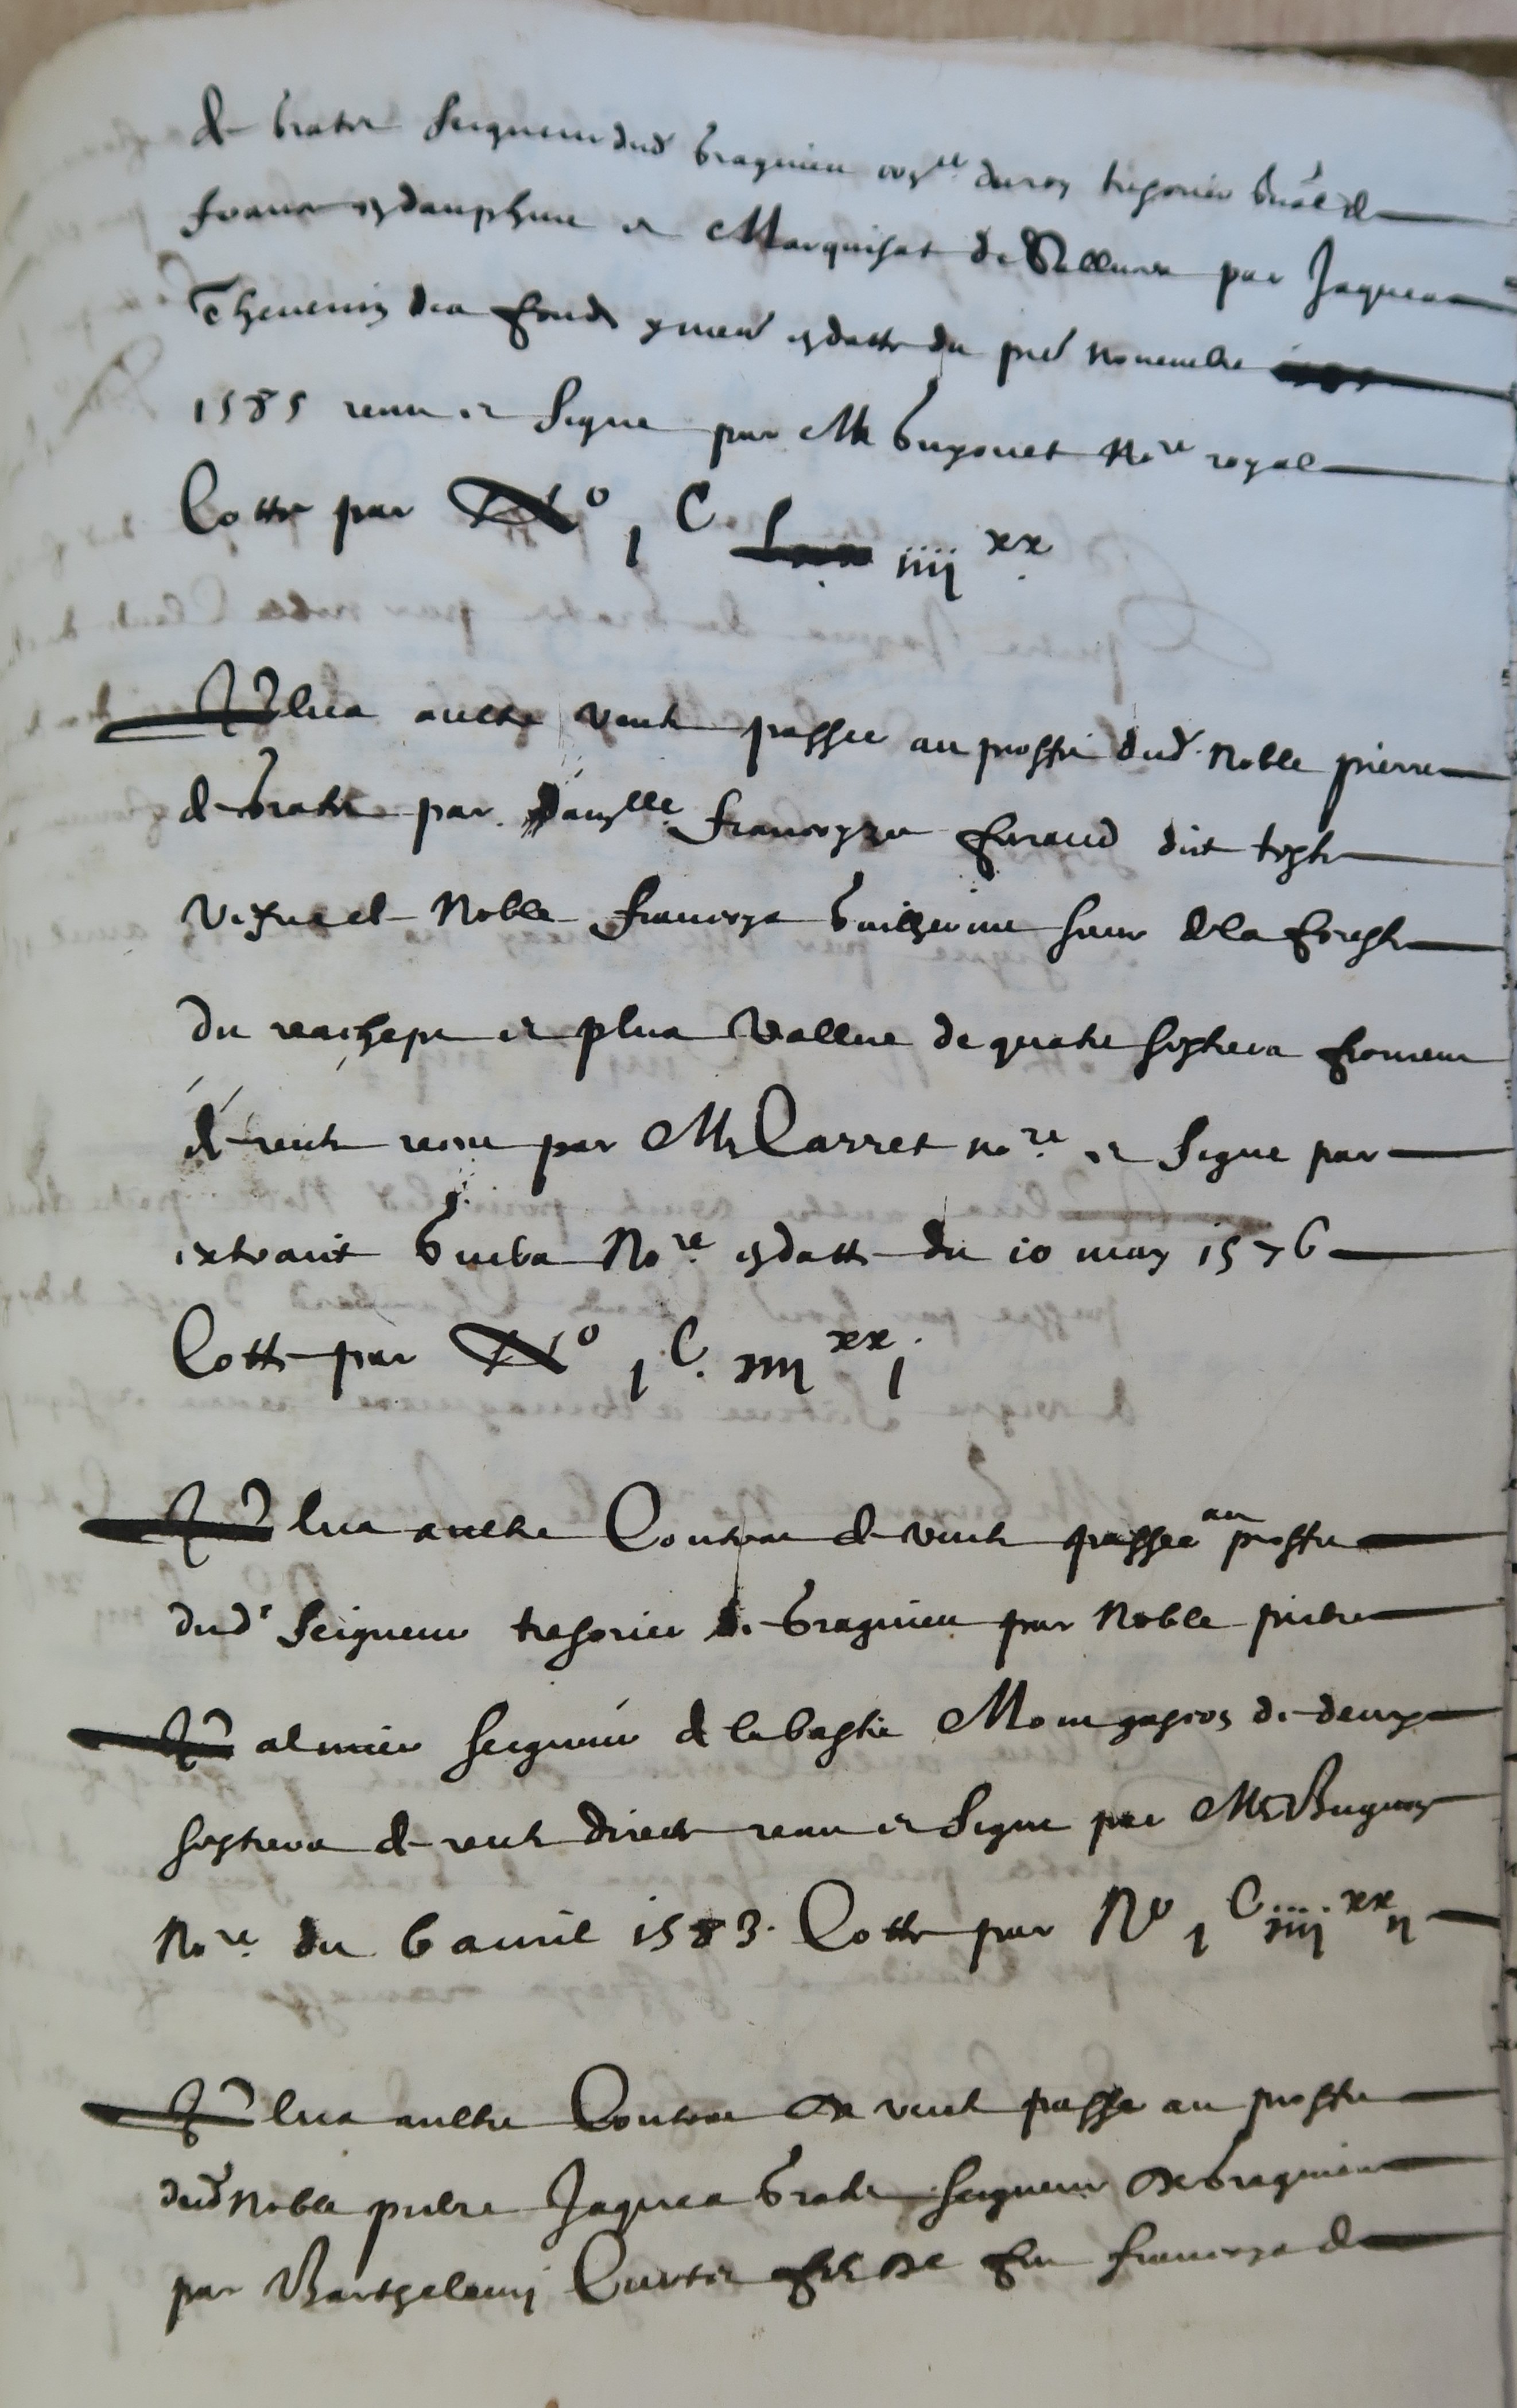 de Grate Seigneur dud Bragnieu du roy tresorier gnal de
france en dauphine et Marquisat de Salluces par Jaques
Thevenin des fonds en datte du pre novembre
1585 receu et signe par Me Guyonet No.re royal
Cotte par N° 1 C iiii xx
Plus aultre vente passee au proffit dud noble pierre
de Grate par Dam.lle francoyse Giraud dit teste
vefve de Noble francoys Guilherme sieur de la foreste
du reachept et plus vallue de quatre sestiers froment
de rente receu par Me Carret no.re et signe par
extraict No.re en datte du 10 may 1576
Cotte par N° 1 C. iiii xx 1
Plus aultre Contract de vente passee au proffit
dud Seigneur tresorier de Bragnieu par Noble pierre
Palmier seigneur de la bastie Montgascon de deux
sestiers de rente directe receu et signe par Me Bugnon
No.re du 6 avril 1583. Cotte par N° 1 C iiii xx ii
Plus aultre Contract de vente passe au proffit
dud noble pierre Jaques Grate seigneur de Bragnieu
par Barthelemy Curtet filz de feu francoys de